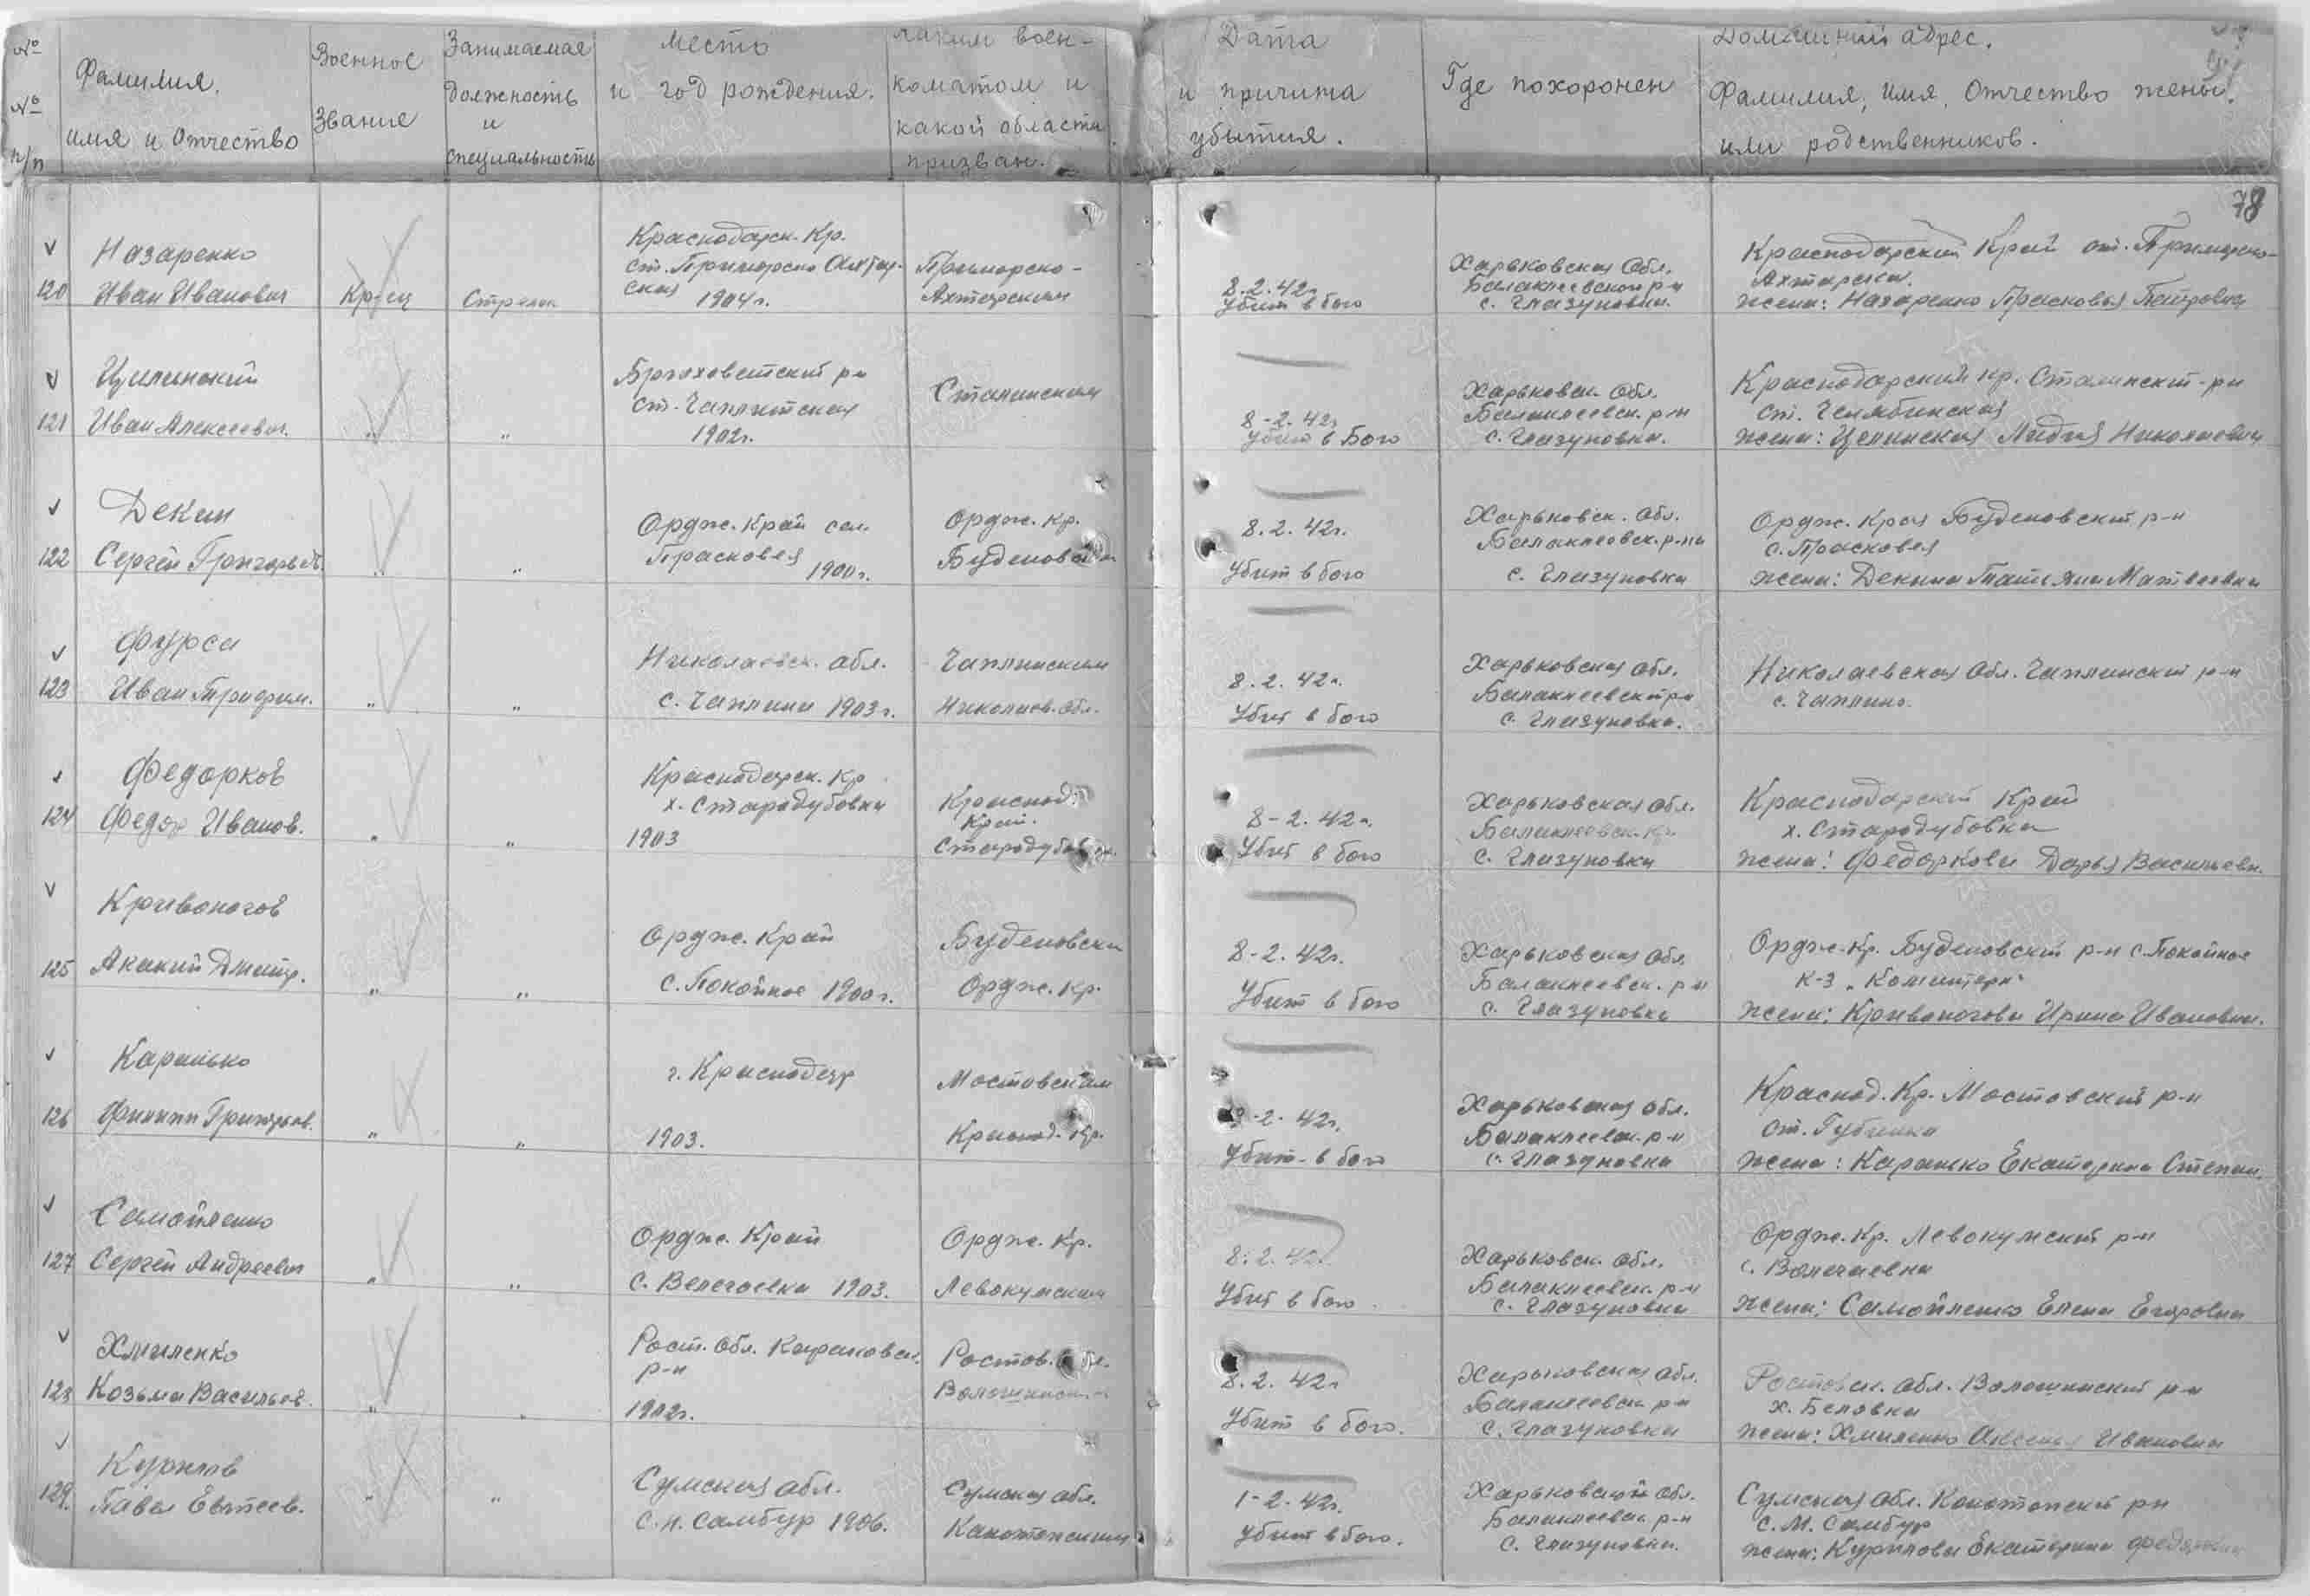 № № п/п
Фамилия, имя и Отчество
Военное Звание
Занимаемая должность и специальность
Место и год рождения.
каким воен-коматом и какой области призван.
Дата и причина убытия.
Где похоронен
Домашний адрес. Фамилия, имя, Отчество жены или родственников.
78
120
Назаренко
Иван Иванович
Кр-ец
Стрелок
Краснодарск. Кр.
ст. Приморско Ахтар-
ская 1904г.
Приморско-
Ахтарским
8.2.42г.
Убит в бою
Харьковская Обл.
Балаклеевский р-н
с. Глазуновка.
Краснодарский Край ст. Приморско-
Ахтарская.
жена: Назаренко Прасковья Петровна
121
Целинский
Иван Алексеевич.
"
"
Брюховетский р-н
ст.
1902г.
Сталинским
8-2.42г
Убит в Бою
Харьковск. Обл.
Балаклеевск. р-н
с. Глазуновка.
Краснодарский кр. Сталинский-р-н
ст.
жена: Целинская Лидия Николаевна
122
Декин
Сергей Григорьев.
"
"
Ордж. Край сел.
Прасковея 1900г.
Ордж. Кр.
Буденовским
8.2.42г.
Убит в бою
Харьковск. Обл.
Балаклеевск. р-на
с. Глазуновка
Ордж. Края Буденовский р-н
с. Прасковея
жена: Декина Татьяна Матвеевна
123
Фурса
Иван Трифим.
"
"
Николаевск. обл.
с. Чаплина 1903г.
Чаплинским
Николаев. Обл.
8.2.42г.
Убит в бою
Харьковская обл.
Балаклеевский р-н
с. Глазуновка.
Николаевская Обл. Чаплинский р-н
с. Чаплино.
124
Федорков
Федор Иванов.
"
"
Краснодарск. Кр
х. Стародубовка
1903
Краснод.
Край.
Стародубовск.
8-2.42г.
Убит в бою
Харьковская обл.
Балаклеевск. р-н
с. Глазуновка
Краснодарский Край
х. Стародубовка
жена: Федоркова Дарья Васильевн.
125
Кривоногов
Акакий Дмитр.
"
"
Ордж. Край
с. Покойное 1900г.
Буденовским
Ордж. Кр.
8-2.42г.
Убит в бою
Харьковская обл.
Балаклеевск. р-н
с. Глазуновка
Ордж. Кр. Буденовский р-н с. Покойное
к-з „Коминтерн"
жена: Кривоногова Ирина Ивановна.
126
Каранько
Филипп Григорьев.
"
"
г. Краснодар
1903.
Мостовским
Краснод. Кр.
8-2.42г.
Убит в бою
Харьковская обл.
Балаклеевск. р-н
с. Глазуновка
Краснод. Кр. Мостовский р-н
ст. Губская
жена: Каранько Екатерина Степан.
127
Самойленко
Сергей Андреевич
"
"
Ордж. Край
с. 1903.
Ордж. Кр.
Левокумским
8.2.42г.
Убит в бою
Харьковск. обл.
Балаклеевск. р-н
с. Глазуновка
Ордж. Кр. Левокумский р-н
с.
жена: Самойленко Елена Егоровна
128
Хмиленко
Козьма Васильев.
"
"
Рост. Обл.
р-н
1902г.
Ростов. обл.
Волошинским
8.2.42г
Убит в бою.
Харьковская обл.
Балаклеевск. р-н
с. Глазуновка
Ростовск. обл. Волошинский р-н
х. Беловка
жена: Хмиленко Аксенья Ивановна
129.
Курилов
Павел Евтеев.
"
"
Сумская обл.
с.н. Самбур 1906.
Сумская обл.
Конотопским
1-2.42г.
Убит в бою.
Харьковской обл.
Балаклеевск. р-н
с. Глазуновка.
Сумская обл. Конотопский р-н
с. М. Самбур
жена: Курилова Екатерина